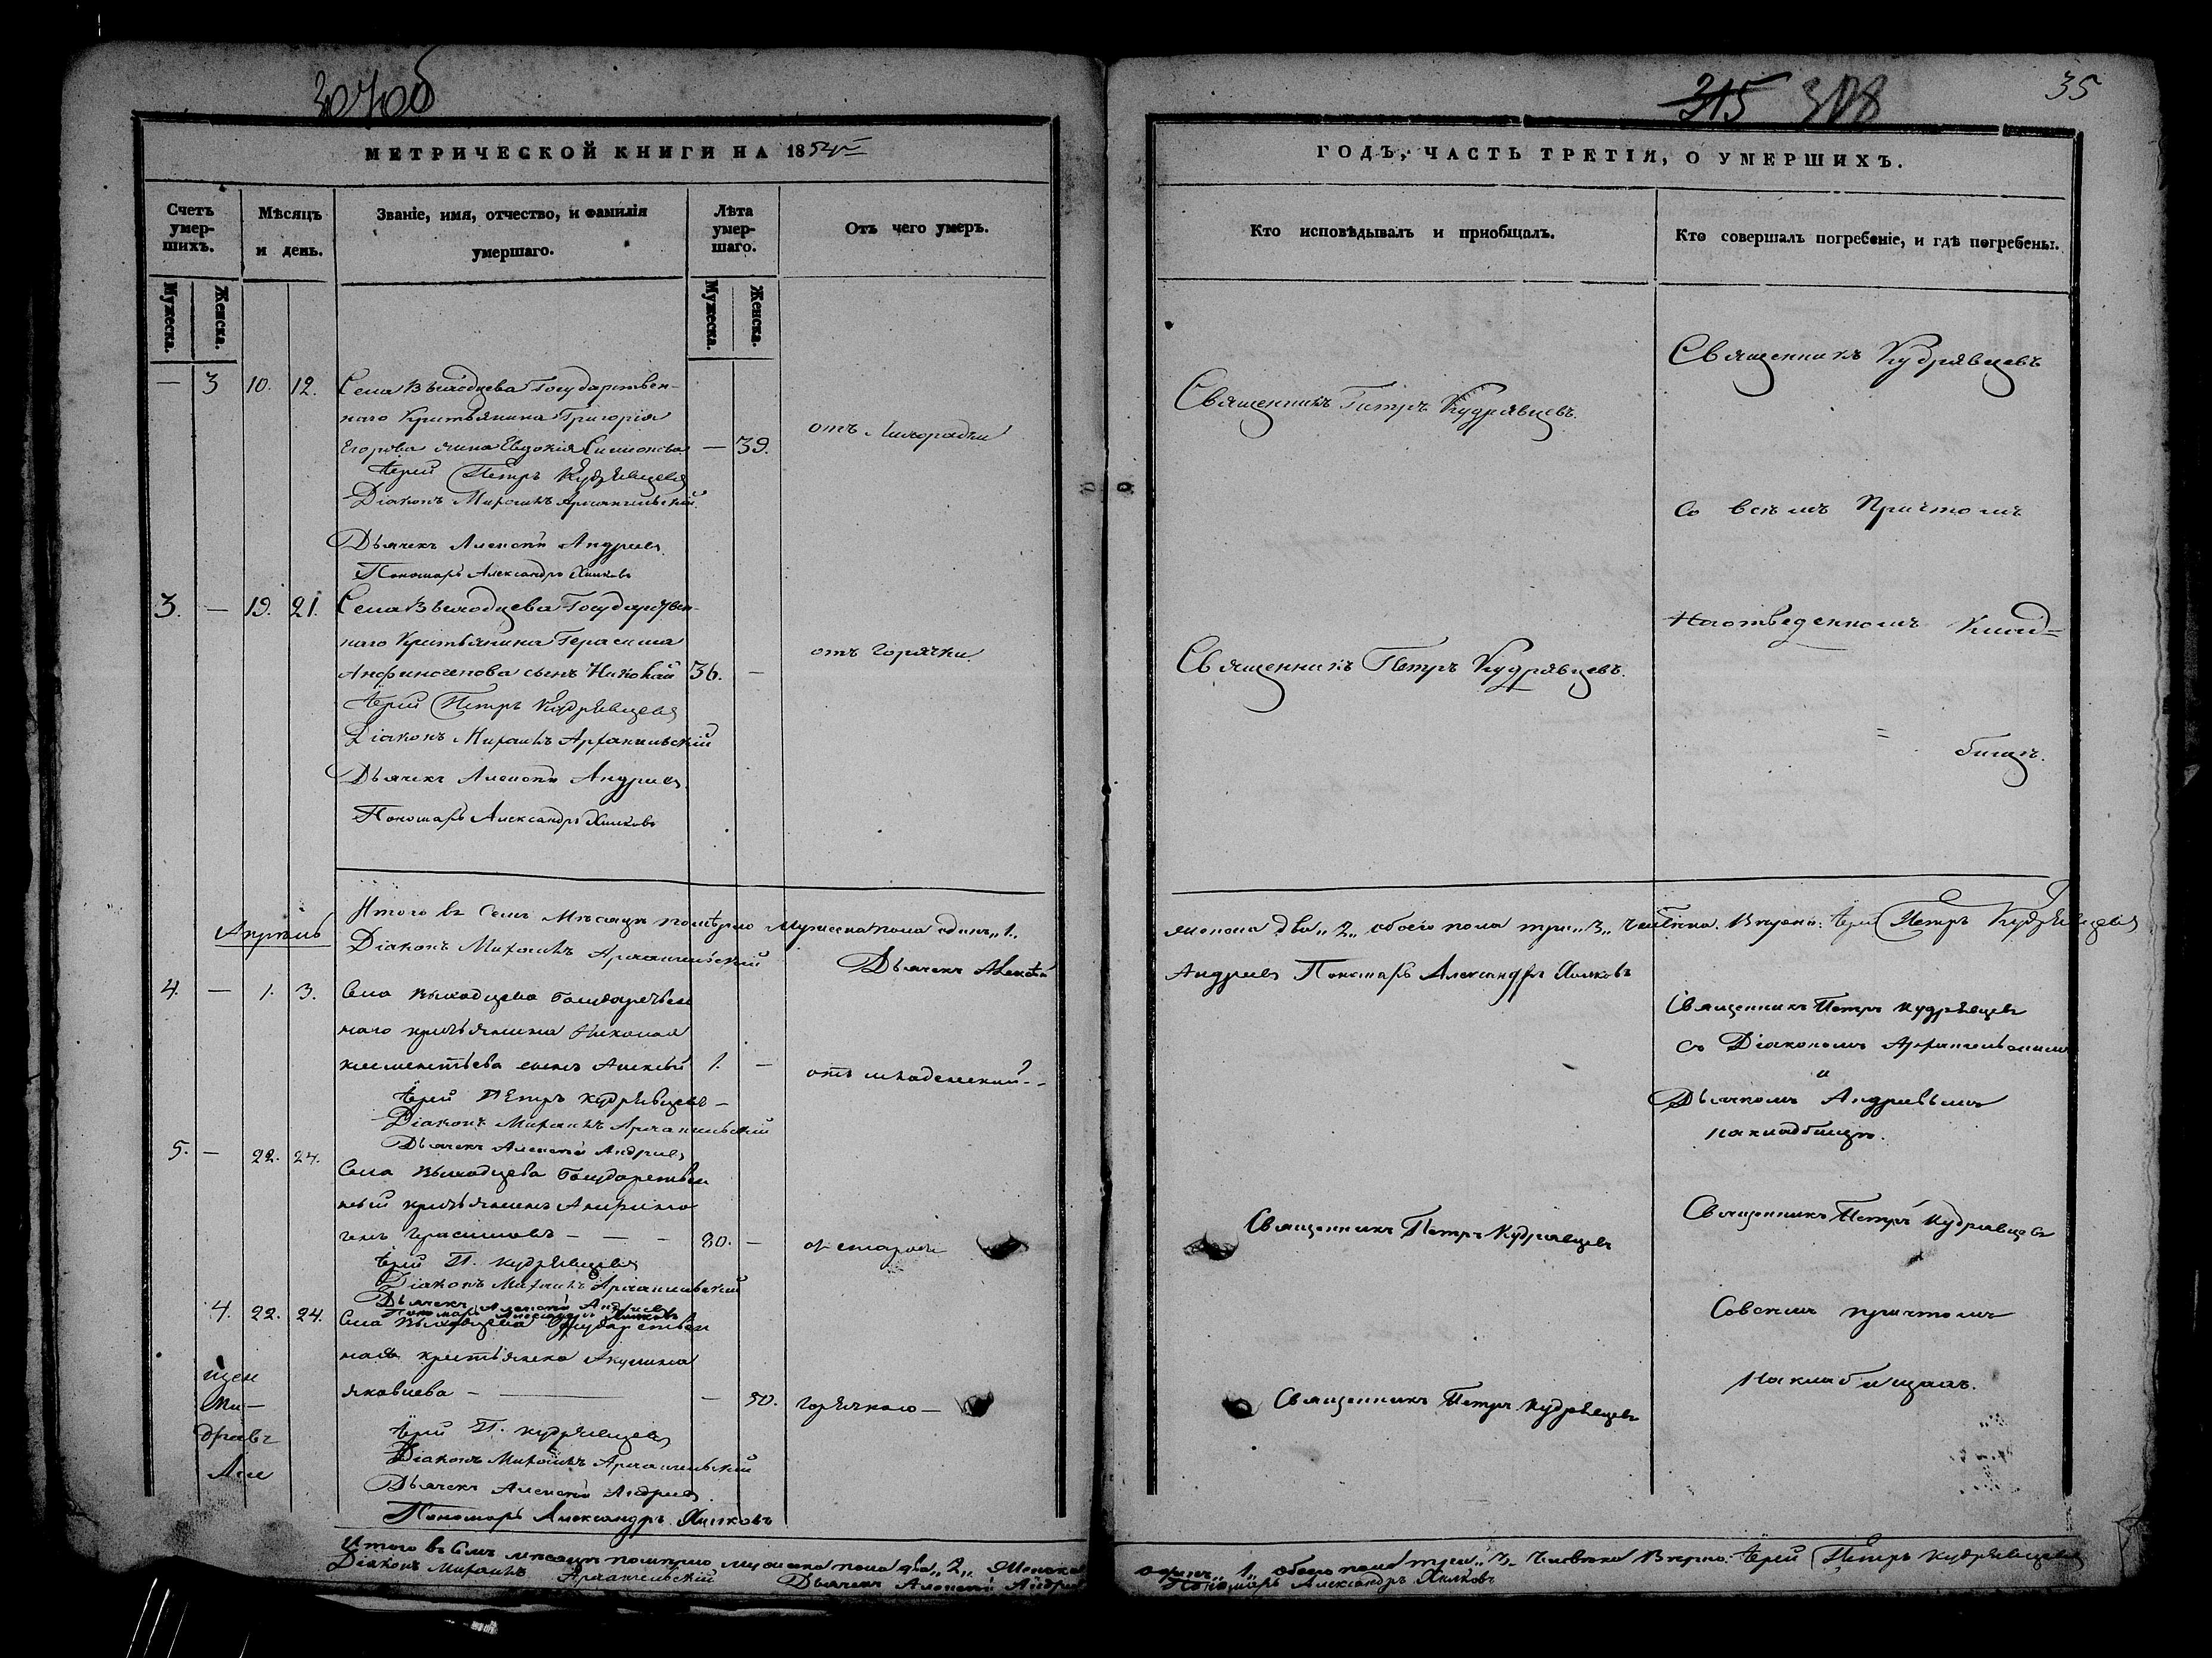 307об
МЕТРИЧЕСКОЙ КНИГИ НА 1854й
Счетъ умер-шихъ.
Мужеска.
Женска.
Мѣсяцъ и день.
Званіе, имя, отчество, и фамилія умершаго.
Лѣта умер-шаго.
Мужеска.
Женска.
Отъ чего умеръ.
— 3 10. 12. Села Выходцева Государствен-
наго Крестьянина Григорія
Егорова жена Евдокія Симионова — 39. отъ Лихорадки
Іерей Петръ Кудрявцевъ
Діаконъ Михаилъ Архангельскій
Дьячекъ Алексѣй Андреевъ
Пономарь Александръ Хилковъ
3. — 19. 21. Села Выходцева Государствен-
наго Крестьянина Герасима
Анфиногенова сынъ Николай 36. — отъ горячки
Іерей Петръ Кудрявцевъ
Діаконъ Михаилъ Архангельскій
Дьячекъ Алексѣй Андреевъ
Пономарь Александръ Хилковъ
Итого въ Семъ Мѣсяцѣ померло Мужеска пола одинъ „1„
Апрѣль
Діаконъ Михаилъ Архангельскій
Дьячекъ Алексѣй
4. — 1. 3. Села Выходцева Государствен
наго крестьянина Николая
климентьева сынъ Алексѣй 1. — отъ младенской
Іерей Петръ Кудрявцевъ
Діаконъ Михаилъ Архангельскій
Дьячекъ Алексѣй Андреевъ
5. — 22. 24. Села Выходцева Государствен
ный крестьянинъ Анфино
генъ Герасимовъ — — — 80. — от старости
Іерей П. Кудрявцевъ
Діаконъ Михаилъ Архангельскій
Дьячекъ Алексѣй Андреевъ
Пономарь Александръ Хилковъ
4. 22. 24. Села Выходцева Государствен
ная крестьянка Акулина
яковлева — — 50. горячкою —
Іерей П. Кудрявцевъ
Діаконъ Михаилъ Архангельскій
Дьячекъ Алексѣй Андреевъ
Пономарь Александръ Хилковъ
щен
Ми-
дравъ
Але
Итого въ Семъ мѣсяцѣ померло мужеска пола два „2„ Женска
Діаконъ Михаилъ Архангельскій Дьячекъ Алексѣй Андре
315 308
35
ГОДЪ, ЧАСТЬ ТРЕТІЯ, О УМЕРШИХЪ.
Кто исповѣдывалъ и пріобщалъ.
Кто совершалъ погребеніе, и гдѣ погребены.
Священникъ Кудрявцевъ
Священникъ Петръ Кудрявцевъ.
со всѣмъ Причтомъ
На отведенномъ Клад=
Священникъ Петръ Кудрявцевъ.
= бищѣ.
женска два „2„ обоего пола три „3„ человѣка. Вѣрно: Іерей Петръ Кудрявцевъ
Андреевъ Пономарь Александръ Хилковъ
Священникъ Петръ Кудрявцевъ
съ Діакономъ Архангельскимъ
и
Дьячкомъ Андреевымъ
на кладбищѣ.
Священникъ Петръ Кудрявцевъ
Священникъ Петръ Кудрявцевъ
Совсемъ причтомъ
На кладбищахъ.
Священникъ Петръ Кудрявцевъ
одинъ „1„ обоего пола три „3„ человѣка Вѣрно: Іерей Петръ Кудрявцевъ
Пономарь Александръ Хилковъ